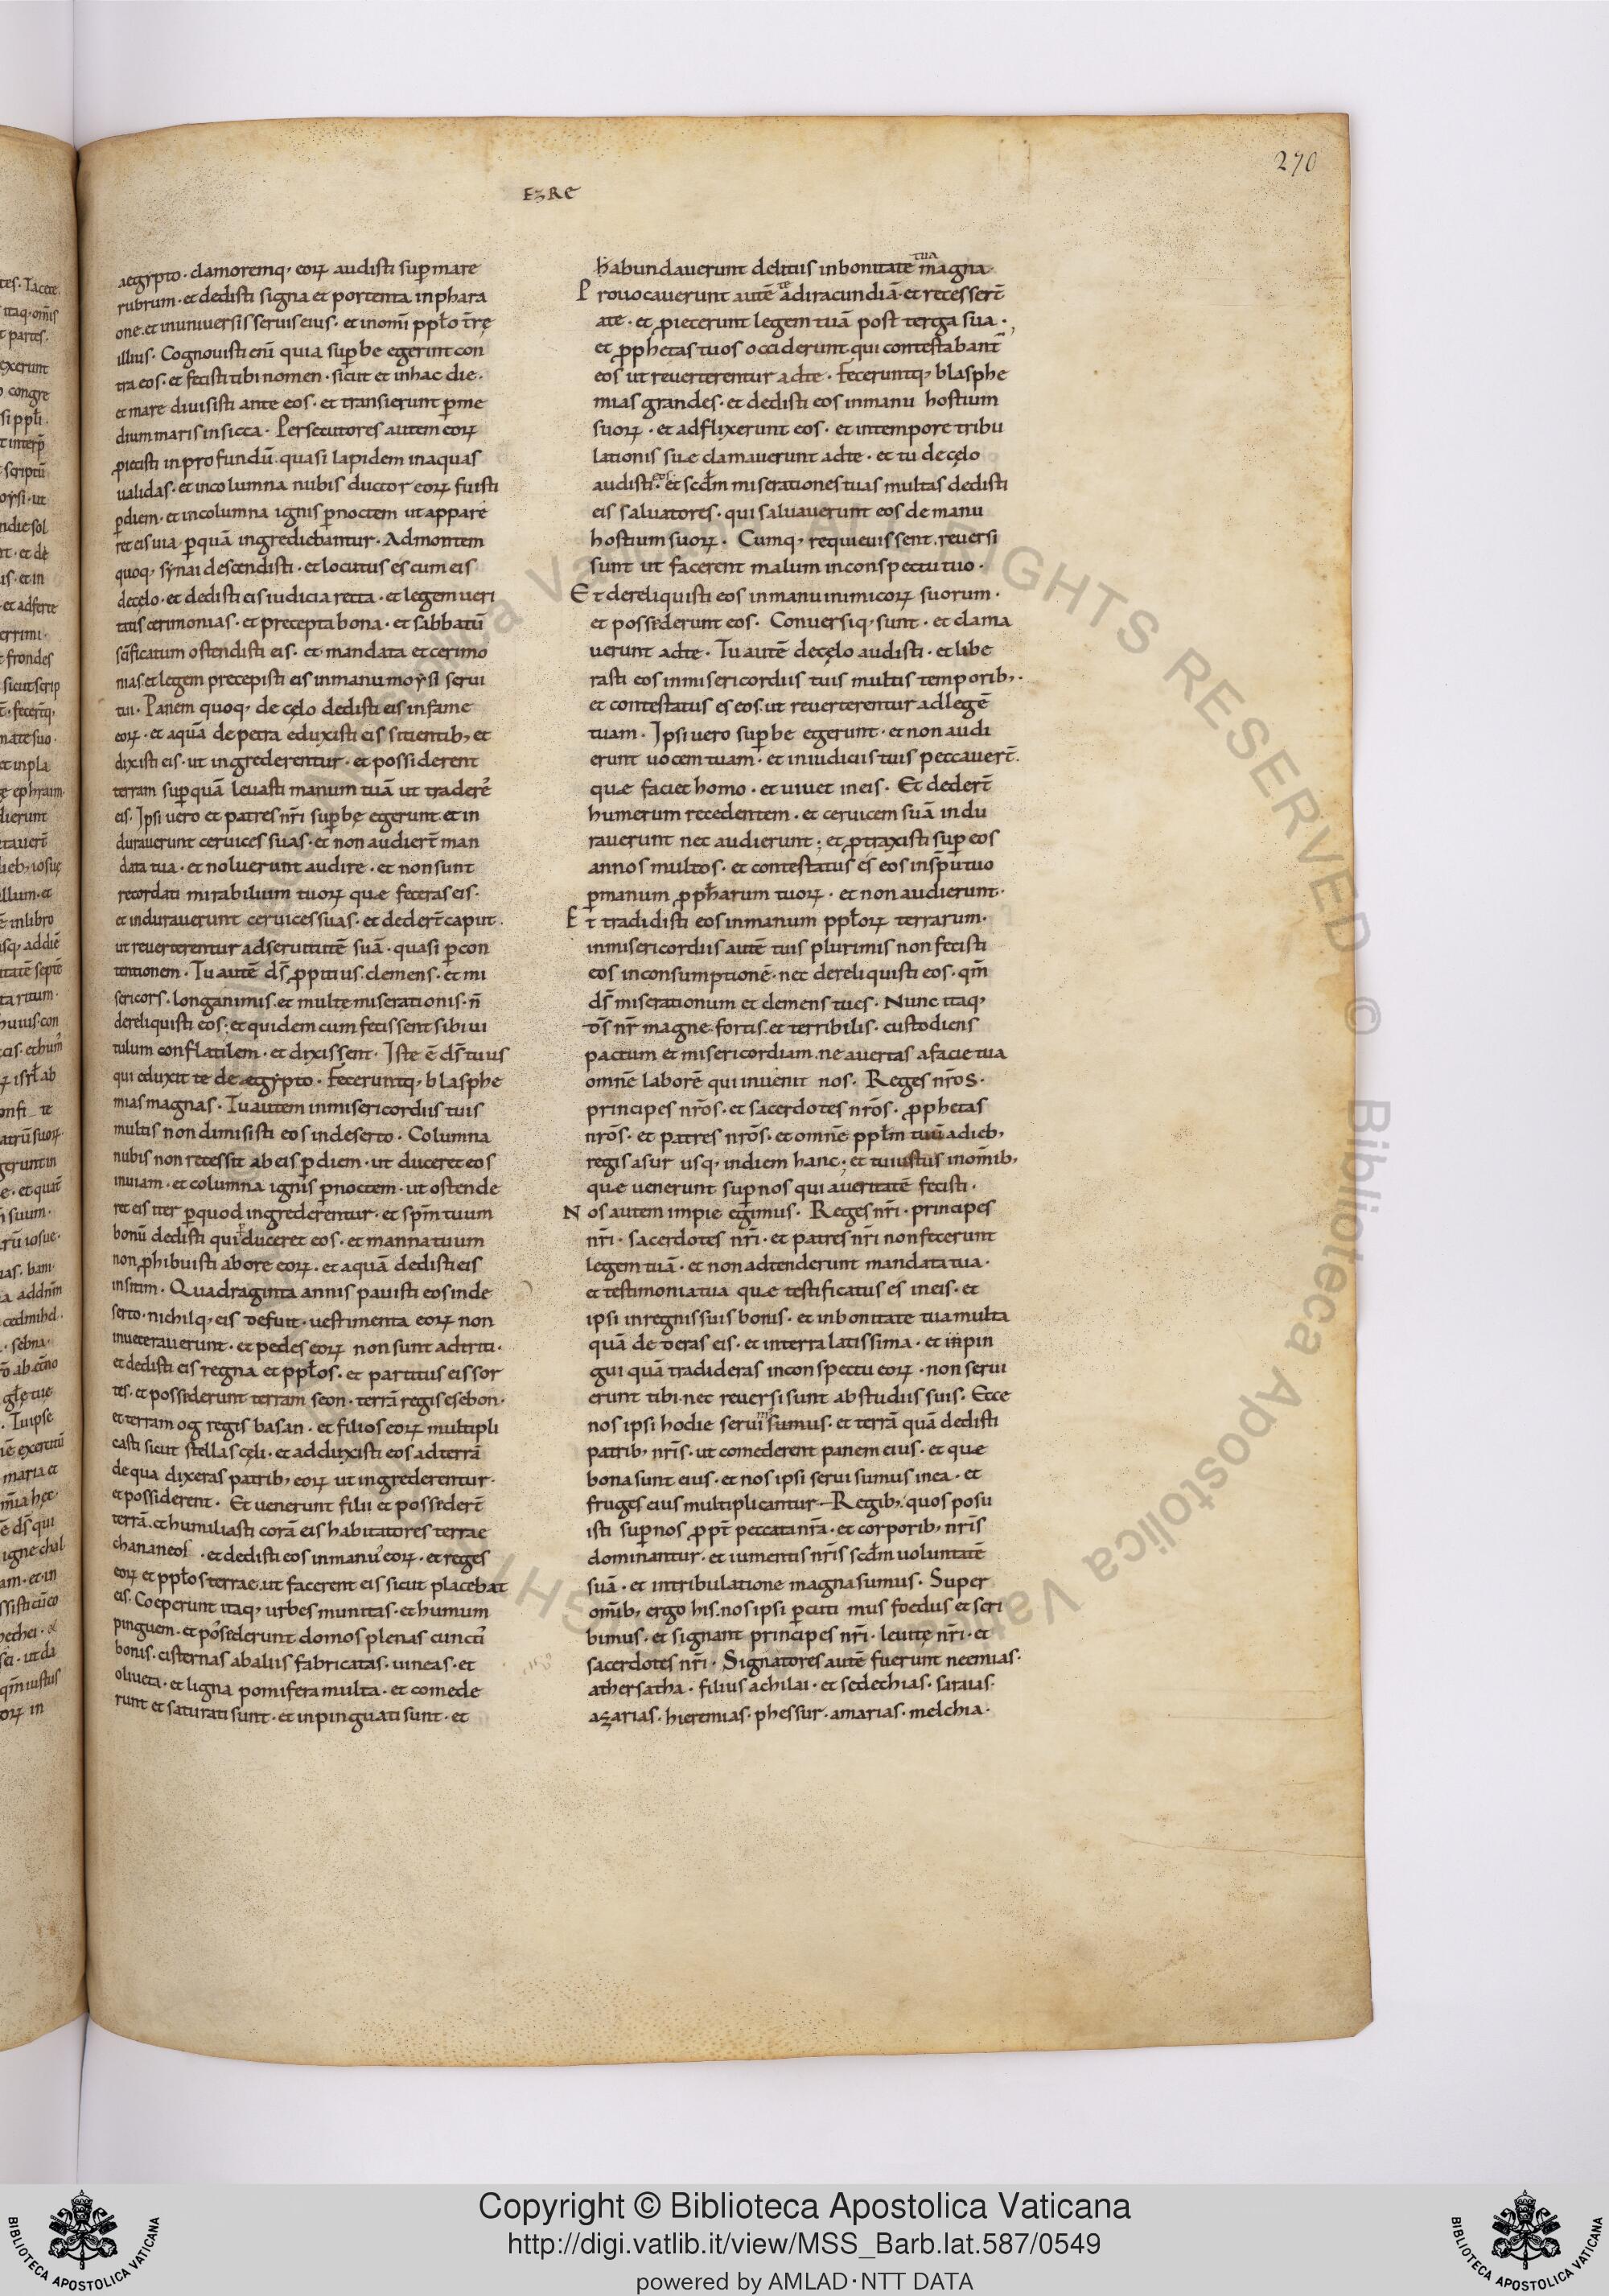 270
EzRE
aegypto · clamoremq; eoꝝ audisti sup̱ mare
rubrum · et dedisti signa et portenta inphara
one · et inuniuersis seruis eius · et inom̄i ppło t̄rę
illius · Cognouisti eni᷑ quia sup̱be egerint con
tra eos · et fecisti tibi nomen · sicut et inhac die ·
et mare diuisisti ante eos · et transierunt p̱me
dium maris insicca · Persecutores autem eoꝝ
ꝓiecisti inprofundū quasi lapidem inaquas
ualidas · et incolumna nubis ductor eoꝝ fuisti
p̱diem · et incolumna ignis p̱noctem ut appare
ret eis uia p̱quā ingrediebantur · Admontem
quoq; synai descendisti · et locutus es cum eis
decęlo · et dedisti eis iudicia recta · et legem ueri
tatis cerimonias · et precepta bona · et sabbatū
sc̄ificatum ostendisti eis · et mandata et cerimo
nias et legem precepisti eis inmanu moysi serui
tui · Panem quoq; de cęlo dedisti eis infame
eoꝝ · et aquā de petra eduxisti eis sitientib; et
dixisti eis · ut ingrederentur · et possiderent
terram sup̱quā leuasti manum tuā ut tradereʼ
eis · Ipsi uero et patres nr̄i sup̱bę egerunt et in
durauerunt ceruices suas · et non audiert̄ man
data tua · et noluerunt audire · et non sunt
recordati mirabilium tuoꝝ quae feceras eis ·
et indurauerunt ceruices suas · et dedert̄ caput ·
ut reuerterentur adseruitutē suā · quasi p̱con
tentionem · Tu autē ds̄ ꝓpitius clemens · et mi
sericors · longanimis et multę miserationis · n̄
dereliquisti eos · et quidem cum fecissent sibi ui
tulum conflatilem · et dixissent · Iste ē ds̄ tuus
qui eduxit te de aegypto · Feceruntq; blasphe
mias magnas · Tu autem inmisericordiis tuis
multis non dimisisti eos indeserto · Columna
nubis non recessit ab eis p̱diem · ut duceret eos
inuiam · et columna ignis p̱noctem · ut ostende
ret eis iter p̱quod ingrederentur · et sp̄m tuum
bonū dedisti qui duceret eos · et manna tuum
non ꝓhibuisti abore eoꝝ · et aquā dedisti eis
insitim · Quadraginta annis pauisti eos inde
serto · nichilq; eis defuit · uestimenta eoꝝ non
inueterauerunt · et pedes eoꝝ non sunt adtriti ·
et dedisti eis regna et ppłos · et partitus eis sor
tes · et possederunt terram seon · terrā regis esebon ·
et terram og regis basan · et filios eoꝝ multipli
casti sicut stellas cęli · et adduxisti eos ad terrā
de qua dixeras patrib; eoꝝ ut ingrederentur ·
et possiderent · Et uenerunt filii et possedert̄
terrā · et humiliasti corā eis habitatores terrae
chananeos · et dedisti eos inmanuʼ eoꝝ · et reges
eoꝝ et ppłos terrae ut facerent eis sicut placebat
eis · Coeperunt itaq; urbes munitas · et humum
pinguem · et possederunt domos plenas cunctiʼ
bonis · cisternas abaliis fabricatas · uineas · et
oliueta · et ligna pomifera multa · et comede
runt et saturati sunt · et inpinguati sunt · et
habundauerunt delitiis inbonitate tua magna ·
Prouocauerunt autē te adiracundiā · et recessert̄
ate · et ꝓiecerunt legem tuā post terga sua ·
et ꝓphetas tuos occiderunt qui contestabant̄
eos ut reuerterentur adte · Feceruntq; blasphe
mias grandes · et dedisti eos inmanu hostium
suoꝝ · et adflixerunt eos · et intempore tribu
lationis suae clamauerunt adte · et tu decęlo
audisti eos · et scd̄m miserationes tuas multas dedisti
eis saluatores · qui saluauerunt eos de manu
hostium suoꝝ · Cumq; requieuissent reuersi
sunt ut facerent malum inconspectu tuo ·
Et dereliquisti eos inmanu inimicoꝝ suorum ·
et possederunt eos · Conuersiq; sunt · et clama
uerunt adte · Tu autē decęlo audisti · et libe
rasti eos inmisericordiis tuis multis temporib; ·
et contestatus es eos ut reuerterentur adlegē
tuam · Ipsi uero sup̱be egerunt · et non audi
erunt uocem tuam · et iniudiciis tuis peccauert̄ ·
quae faciet homo · et uiuet ineis · Et dedert̄
humerum recedentem · et ceruicem suā indu
rauerunt nec audierunt · et ꝓtraxisti sup̱ eos
annos multos · et contestatus es eos insp̄u tuo
p̱manum ꝓpharum tuoꝝ · et non audierunt ·
Et tradidisti eos inmanum ppłoꝝ terrarum ·
inmisericordiis autē tuis plurimis non fecisti
eos inconsumptionē · nec dereliquisti eos · qm̄
ds̄ miserationum et clemens tu es · Nunc itaq;
ds̄ nr̄ magne fortis et terribilis · custodiens
pactum et misericordiam ne auertas afacie tua
omnē laborē qui inuenit nos · Reges nr̄os ·
principes nr̄os · et sacerdotes nr̄os · ꝓphetas
nr̄os · et patres nr̄os · et omnē ppłm tuū adieb;
regis asur usq; indiem hanc · et tu iustus inom̄ib;
quae uenerunt sup̱ nos quia ueritatē fecisti ·
Nos autem impie egimus · Reges nr̄i · principes
nr̄i · sacerdotes nr̄i · et patres nr̄i non fecerunt
legem tuā · et non adtenderunt mandata tua ·
et testimonia tua quae testificatus es ineis · et
ipsi inregnis suis bonis · et inbonitate tua multa
quā dederas eis · et interra latissima · et inpin
gui quā tradideras inconspectu eoꝝ · non serui
erunt tibi · nec reuersi sunt abstudiis suis · Ecce
nos ipsi hodie serui sumus · et terrā quā dedisti
patrib; nr̄is · ut comederent panem eius · et quae
bona sunt eius · et nos ipsi serui sumus inea · et
fruges eius multiplicantur Regib; quos posu
isti sup̱ nos ꝓpt̄ peccata nr̄a · et corporib; nr̄is
dominantur · et iumentis nr̄is scd̄m uoluntatē
suā · et intribulatione magna sumus · Super
om̄ib; ergo his nos ipsi p̱cuti mus foedus et scri
bimus · et signant principes nr̄i · leuitę nr̄i · et
sacerdotes nr̄i · Signatores autē fuerunt neemias ·
athersatha · filius achilai · et sedechias · saraias ·
azarias · hieremias · phessur · amarias · melchia ·
Copyright © Biblioteca Apostolica Vaticana
http://digi.vatlib.it/view/MSS_Barb.lat.587/0549
powered by AMLAD·NTT DATA